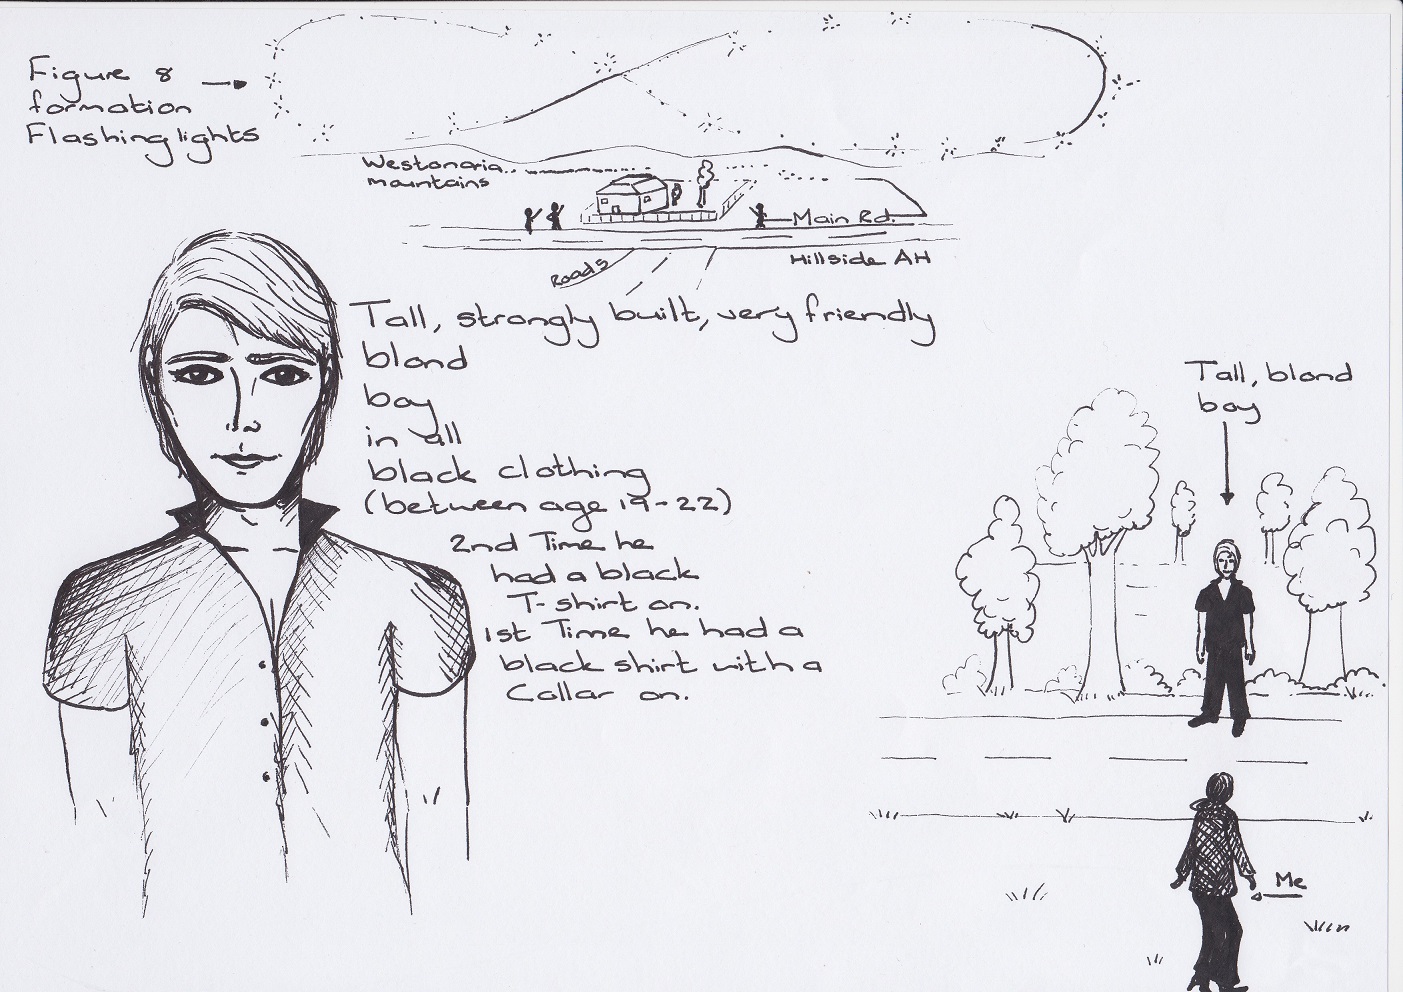 Figure 8
formation
Flashing lights
Westonaria
mountains
Main Rd.
Roads
Hillside AH
Tall, strongly built, very friendly
blond
boy
in all
black clothing
(between age 19-22)
2nd Time he
had a black
T-shirt on.
1st Time he had a
black shirt with a
Collar on.
Tall, blond
boy
Me